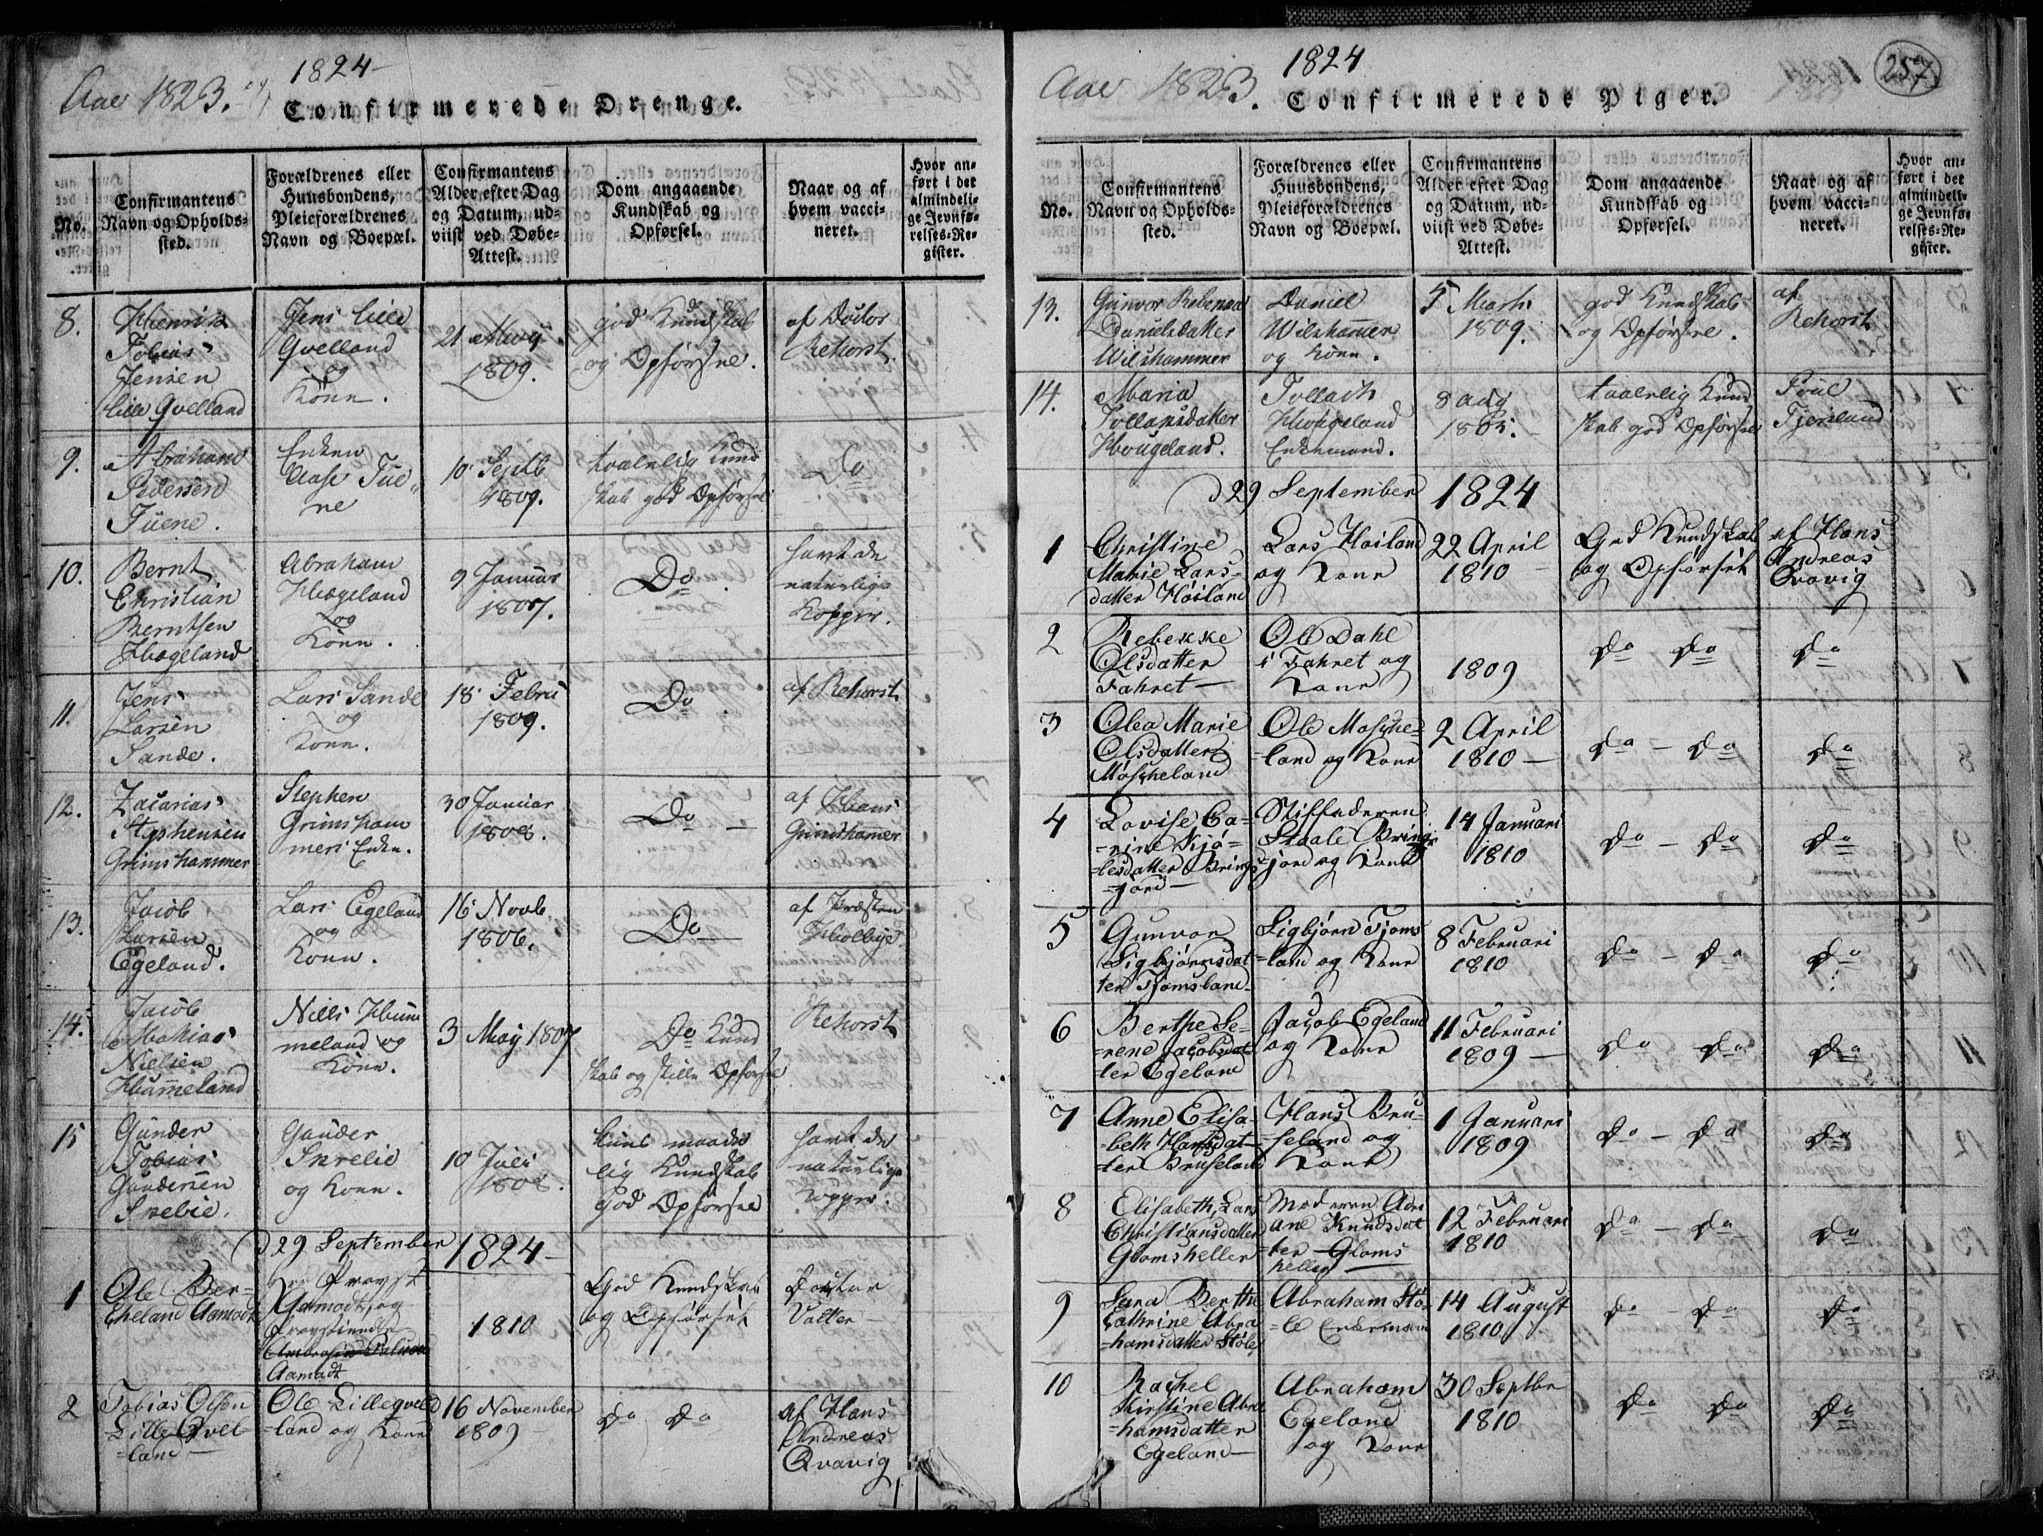 Aar 1823. 1824
Confirmerede Drenge.
No.
Confirmantens
Navn og Opholds-
sted.
Forældrenes eller
Huusbondens,
Pleieforældrenes
Navn og Boepæl.
Confirmantens
Alder efter Dag
og Datum, ud-
viist ved Døbe-
Attest.
Dom angaaende
Kundskab og
Opførsel.
Naar og af
hvem vacci-
neret.
Hvor an-
ført i det
almindeli-
ge Jevnfø-
relses-Re-
gister.
8.
Henrik
Tobias
Jensen
Lille Qvelland
Jens Lille
Qvelland
og
Kone.
21 May
1809.
god Kundskab
og Opførsel.
af Doctor
Rehorst.
9.
Abraham
Pedersen
Tuene.
Enken
Aase Tue-
ne
10 Septb
1809.
taalelig Kund
skab god Opførsel
Do
10.
Bernt
Christian
Berntsen
Hægeland
Abraham
Hægeland
og
Kone.
9 Januar
1807.
Do
havt de
naturlige
Kopper.
11.
Jens
Larsen
Sande.
Lars Sande
og
Kone.
18 Febru
1809.
Do
af Rehorst
12.
Zacarias
Stephensen
Grimshammer
Stephen
Grimsham
mers Enke.
30 Januar
1808.
Do
af Hans
Grimshamer
13.
Jacob
Larsen
Egeland.
Lars Egeland
og
Kone.
16 Novb.
1806.
Do
af Præsten
Holbye
14.
Jacob
Mathias
Nielsen
Hummeland
Niels Hum
meland og
Kone.
3 May 1807
Do Kund
skab og stille Opførsel
Rehorst
15
Gunder
Tobias
Gundersen
Snebie.
Gunder
Snebie
og Kone.
10 Juli
1808.
kuns maade
lig Kundskab
God Opførsel
havt de
naturlige
Kopper.
d 29 September 1824
1
Ole Ber-
theland Aamodt
Provst
Aamodt og
Provstinde
Aamodt
1810
God Kundskab
og Opførsel
Doctor
Valter
2
Tobias Olsen
Lille Qvel-
=land
Ole Lilleqvel
=land og Kone
16 November
1809
do do
af Hans
Andreas
Qvavig
Aar 1823. 1824
257
Confirmerede Piger.
No.
Confirmantens
Navn og Opholds-
sted.
Forældrenes eller
Huusbondens,
Pleieforældrenes
Navn og Boepæl.
Confirmantens
Alder efter Dag
og Datum, ud-
viist ved Døbe-
Attest.
Dom angaaende
Kundskab og
Opførsel.
Naar og af
hvem vacci-
neret.
Hvor an-
ført i det
almindeli-
ge Jevnfø-
relses-Re-
gister.
13.
Gunvor Rebecca
Danielsdatter
Wilshammer
Daniel
Wilshammer
og Kone.
5 Marti
1809.
god Kundskab
og Opførsel.
af
Rehorst
14.
Maria
Tollagsdatter
Hougeland.
Tollach
Hougeland
Enkemand.
8 Aug
1805.
taalelig Kund
skab god Opførsel
Poul
Tjomland
d 29 September 1824
1
Christine
Marie Lars-
datter Høiland
Lars Høiland
og Kone
22 April
1810
God Kundskab
og Opførsel
af Hans
Andreas
Qvavig
2
Rebekke
Olsdatter
Fahret
Ole Dahl
i Fahret og
Kone
1809
do do
do
3
Olea Marie
Olsdatter
Møscheland
Ole Møsche=
=land og Kone
2 April
1810
do - do
do
4
Lovise Ca-
=rine Kjø-
=lesdatter Brings
=jord
Stiffaderen
Staale Brings
jord og Kone
14 Januari
1810
do - do
do
5
Gunvor
Sigbjørnsdat
ter Tjomsland
Sigbjørn Tjoms
=land og Kone
8 Februari
1810
do - do
do
6
Berthe Se-
=rene Jacobsdat
=ter Egeland
Jacob Egeland
og Kone
11 Februari
1809
do do
do
7
Anne Elisa-
=beth Hansdat
=ter Bruseland
Hans Bru-
=seland og
Kone
1 Januari
1809
do - do
do
8
Elisabeth Lars
Christiansdatter
Glomsheller
Moderen Adri
ane Knudsdat
ter Gloms
heller
12 Februari
1810
do - do
do
9
Sara Berthe
Cathrine Abra
hamsdatter Støle
Abraham Stø
=le Enkemann
14 August
1810
do - do
do
10
Rachel
Kirstine Abra
=hamsdatter
Egeland
Abraham
Egeland
og Kone
30 Septbr
1810
do do
do